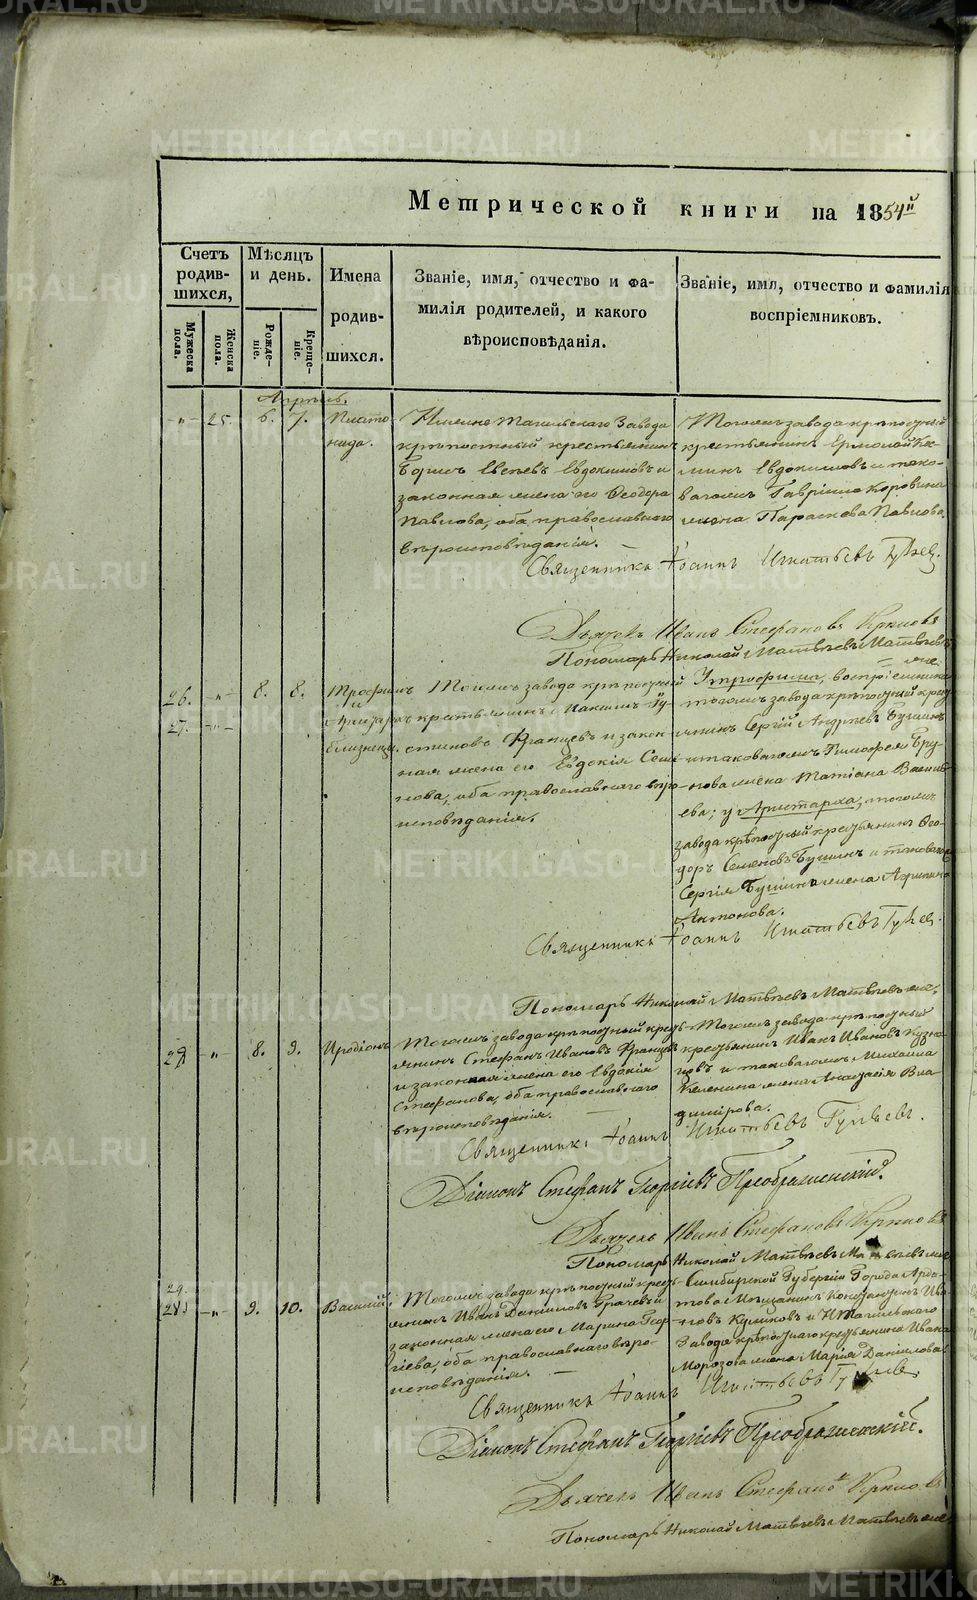 METRIKI.GASO-URAL.RU
Метрической книги на 1854й
Счетъ родив-шихся,
Мужеска пола.
Женска пола.
Мѣсяцъ и день.
Рожде-ніе.
Креще-ніе.
Имена родив-шихся.
Званіе, имя, отчество и фа-
милія родителей, и какого
вѣроисповѣданія.
Званіе, имя, отчество и фамилія
воспріемниковъ.
Апрѣль.
-"- 25. 6. 7. Плато-
нида.
Нижне Тагильскаго Завода
крѣпостный крестьянинъ
Евдокимовъ и
законная жена его Ѳеодора
Павлова, оба православнаго
вѣроисповѣданія.
Тогожъ завода крѣпостный
крестьянинъ Ермолай
Евдокимовъ и тако-
вагожъ Гавріила Коровина
жена Параскева Павлова.
Священникъ Іоаннъ Игнатьевъ
Дьячекъ Иванъ Стефановъ
Пономарь Николай Матвѣевъ Матвѣевъ
26. -"- 8. 8. Трофимъ
и
27. -"- Аристархъ
близнецы.
Тогожъ завода крѣпостный
крестьянинъ Іакимъ Ѳу-
стиновъ Францевъ и закон-
ная жена его Евдокія Семе-
нова, оба православнаго вѣро-
исповѣданія.
У Трофима, воспріемники
тогожъ завода крѣпостный крест-
янинъ Сергій Андреевъ Бушинъ
и таковагожъ Тимофея Бру-
нова жена Татіана Василь-
ева; у Аристарха, тогожъ
завода крѣпостный крестьянинъ Ѳео-
доръ Семеновъ Бушинъ и таковагожъ
Сергія Бушина жена Агрипина
Антонова.
Священникъ Іоаннъ Игнатьевъ
Пономарь Николай Матвѣевъ Матвѣевъ
28. " 8. 9. Иродіонъ
Тогожъ завода крѣпостный кресть-
янинъ Стефанъ Ивановъ Францевъ
и законная жена его Евдокія
Стефанова, оба православнаго
вѣроисповѣданія.
Тогожъ завода крѣпостный
крестьянинъ Иванъ Ивановъ Кузне-
цовъ и таковагожъ Михаила
жена Анастасія Вла-
димірова.
Священникъ Іоаннъ Игнатьевъ
Діаконъ Стефанъ Георгіевъ Преображенскій.
Дьячекъ Иванъ Стефановъ
Пономарь Николай Матвѣевъ Матвѣевъ
29.
28. -"- 9. 10. Василій.
Тогожъ завода крѣпостный кресть-
янинъ Иванъ Даниловъ Грачевъ и
законная жена его Марина Геор-
гіева, оба православнаго вѣро-
исповѣданія.
Симбирской Губерніи Города Арда-
това Мѣщанинъ Кондратій Ива-
новъ Куликовъ и Н. Тагильскаго
Завода крѣпостнаго крестьянина Ивана
Морозова жена Марія Данилова.
Священникъ Іоаннъ Игнатьевъ
Діаконъ Стефанъ Георгіевъ Преображенскій.
Дьячекъ Иванъ Стефановъ
Пономарь Николай Матвѣевъ Матвѣевъ